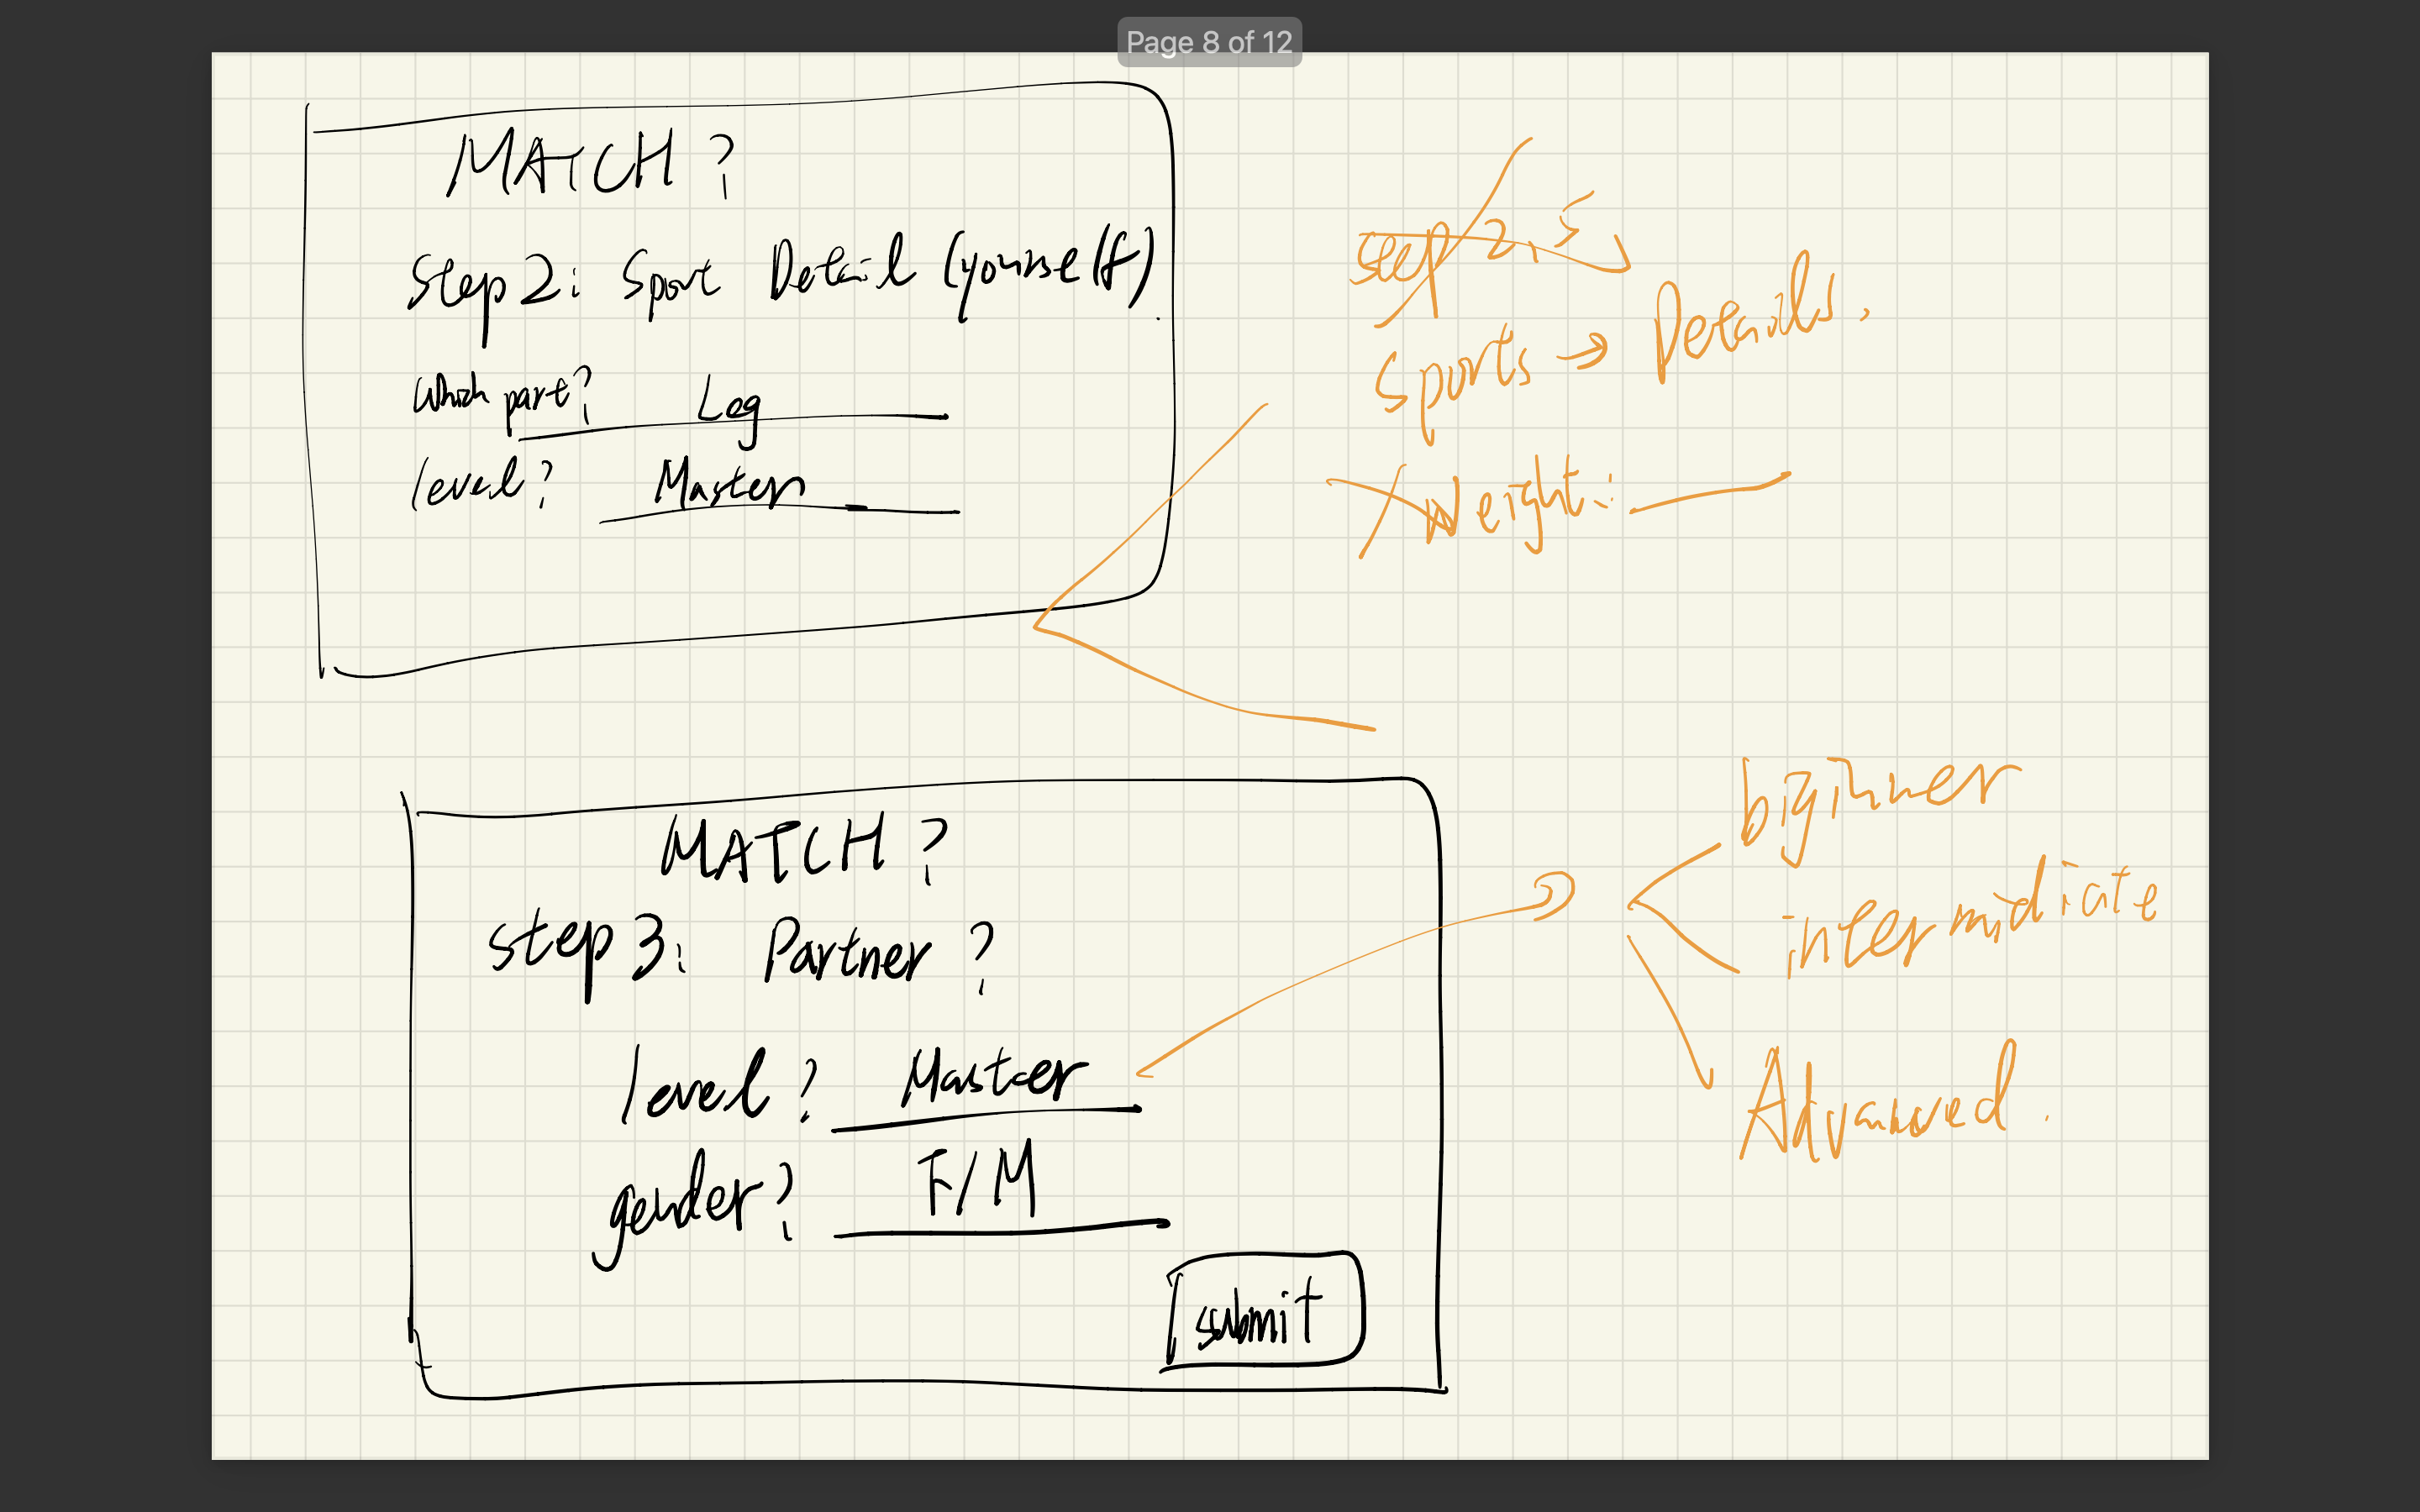 Page 8 of 12
MATCH?
Step2: Sport Detail (yourself).
Which part? Leg
level? Master
step 2.5
Sports → Details.
Weight:
MATCH?
step3: Partner?
level? Master
gender? F/M
submit
biginner
intermdiate
Advanced.